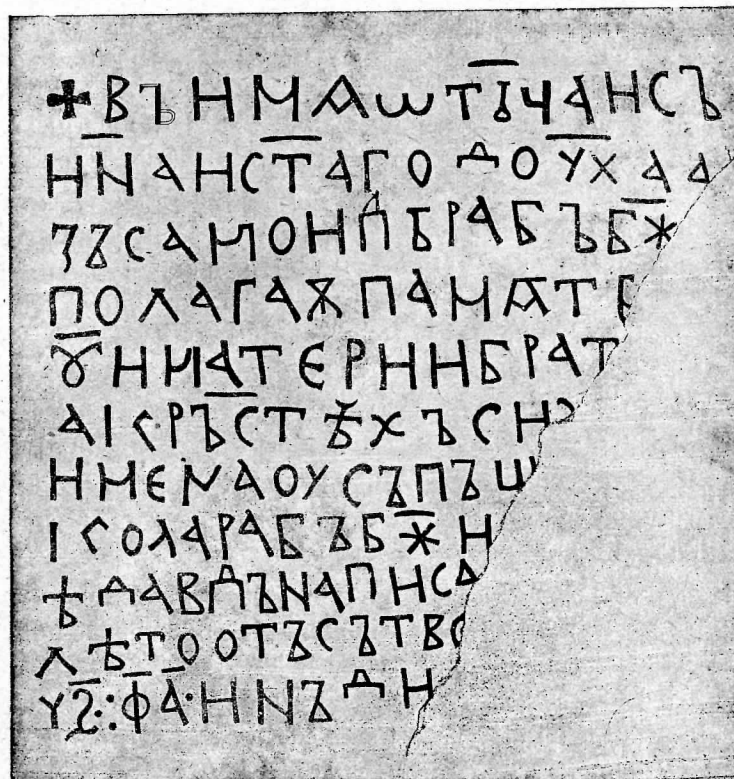 ✚ ВЪИМѦѠТЬЧАИСЪ
ИНАИСТАГОДОУХАА
ЗЪСАМОИПЬРАБЪБЖ
ПОЛАГАѪПАМѦТ
ꙊИМАТЕРИИБРАТ
АІКРЪСТѢХЪСИ
ИМЕНАОУСЪПЪШ
ІКОЛАРАБЪБЖИ
ѢДАВДЪНАПИСА
ЛѢТООТЪСЪТВО
УЅ·:·ФА·ИНЪДИ